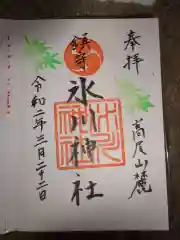 奉拝
高尾山麓
鎮守
氷川神社
令和二年三月二十二日